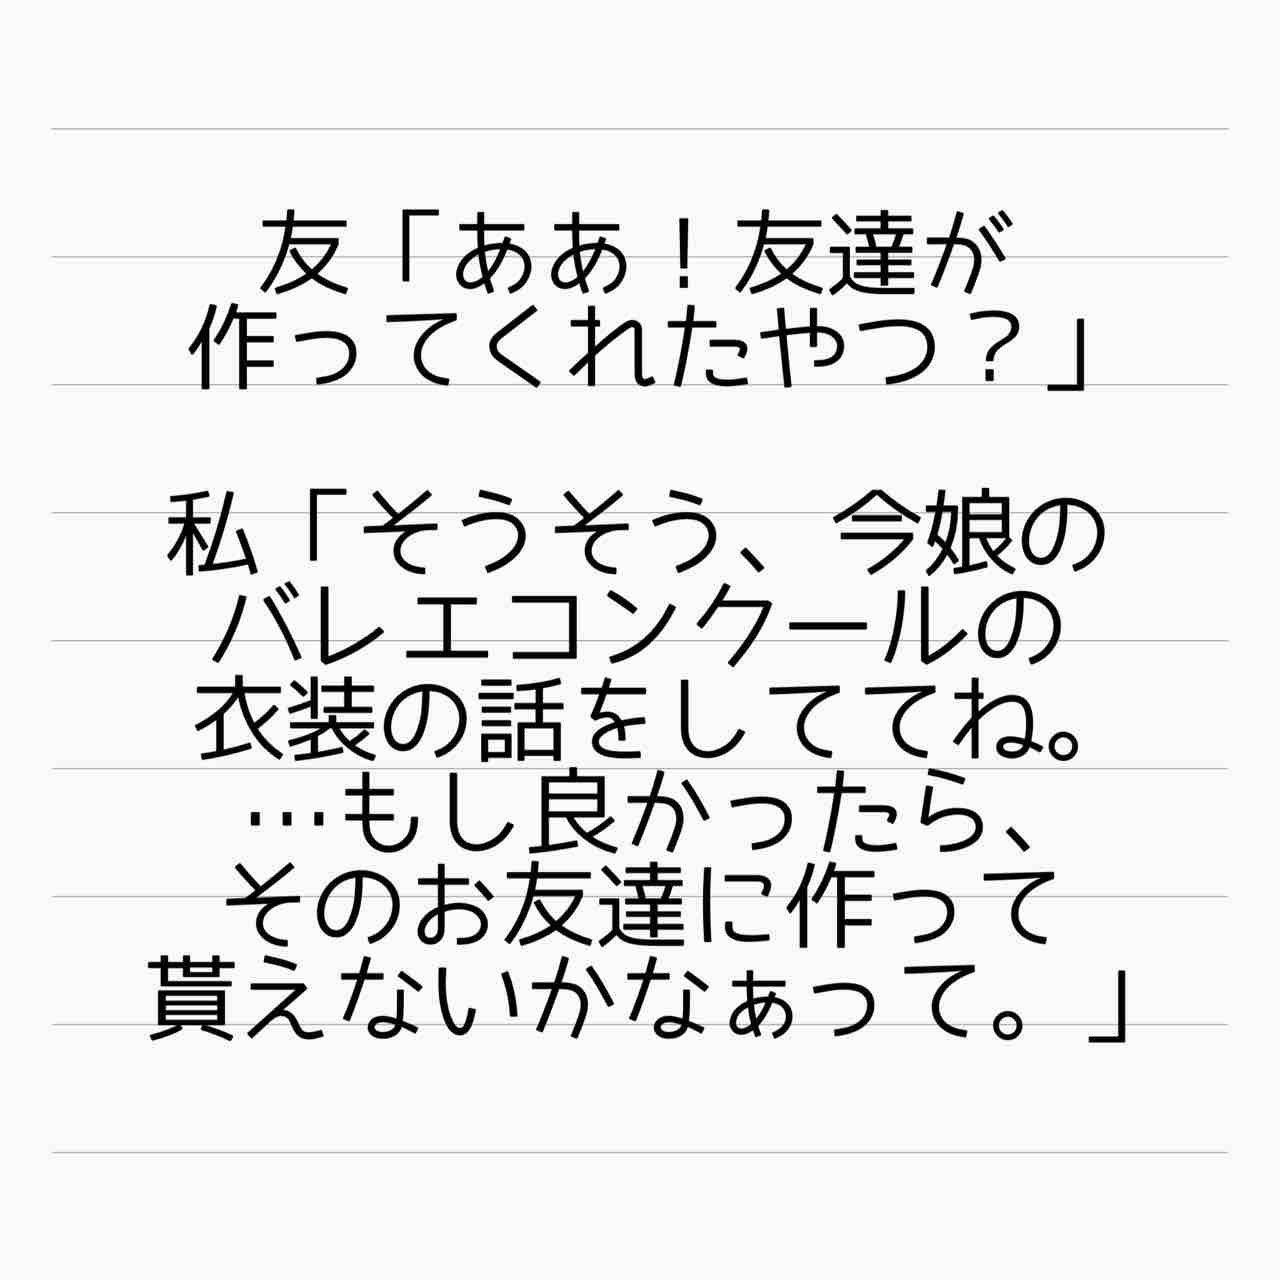 友「ああ！友達が
作ってくれたやつ？」
私「そうそう、今娘の
バレエコンクールの
衣装の話をしててね。
…もし良かったら、
そのお友達に作って
貰えないかなぁって。」